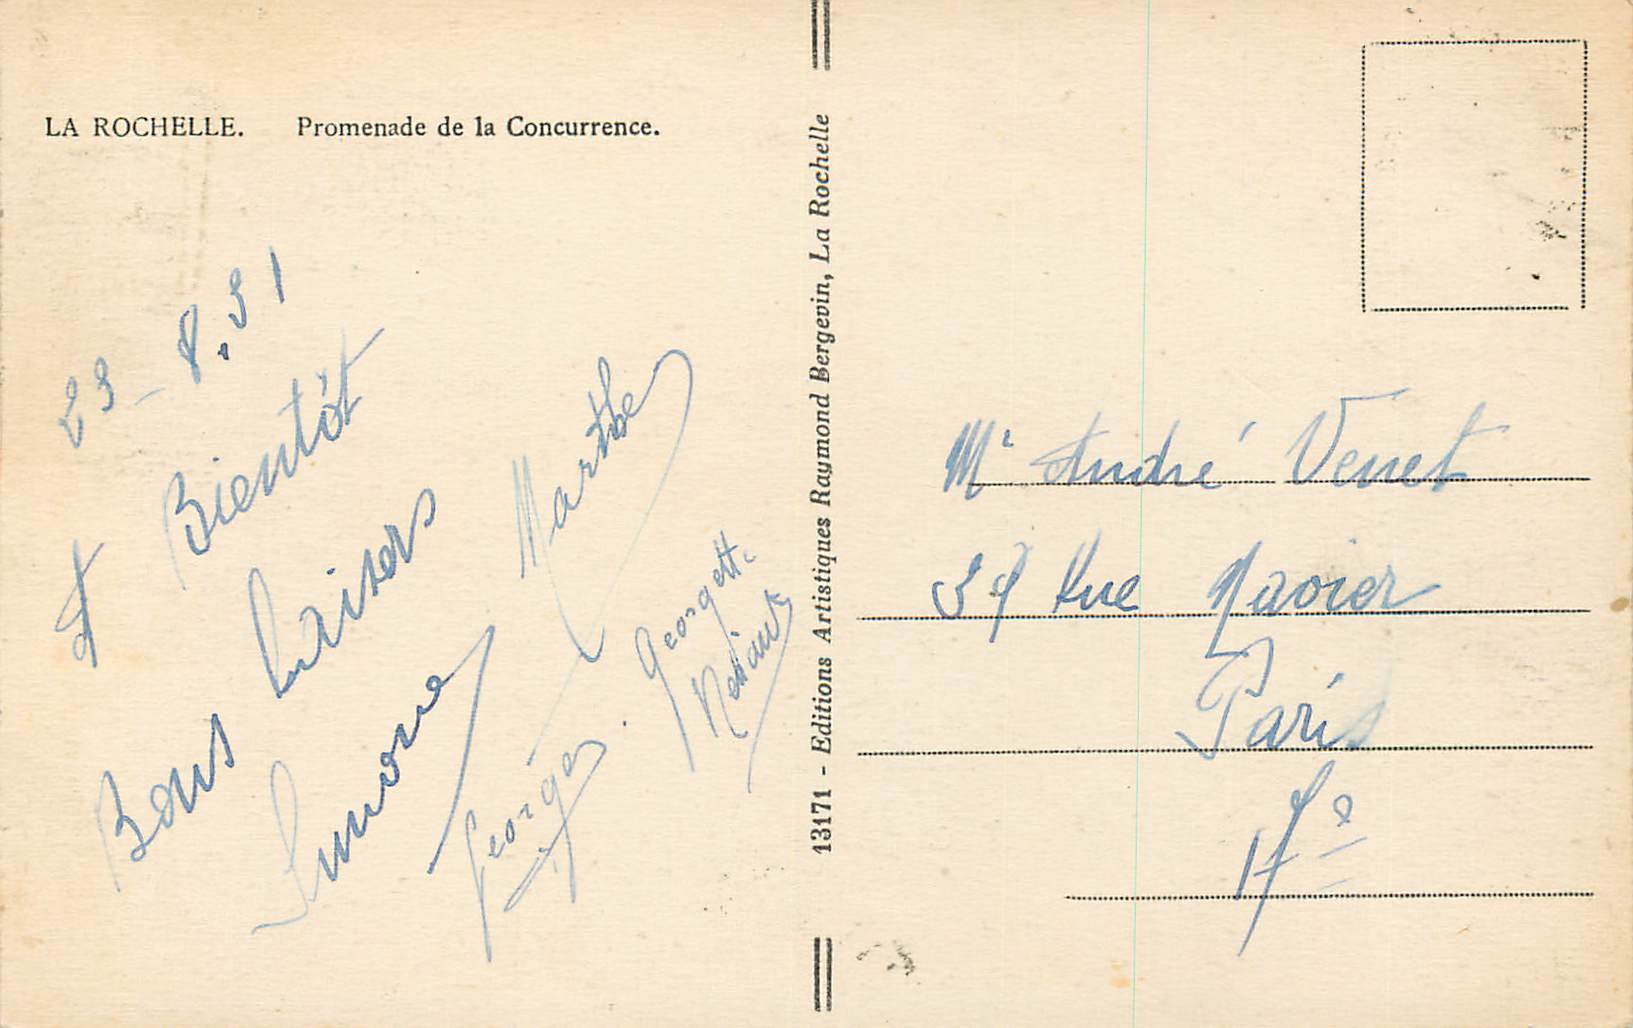 LA ROCHELLE. Promenade de la Concurrence.
23 - 8.51
A Bientôt
Bons baisers
Simone
Marthe
Georges.
Georgette
13171 - Editions Artistiques Raymond Bergevin, La Rochelle
Mr André Venet
39 Rue Navier
Paris
17e